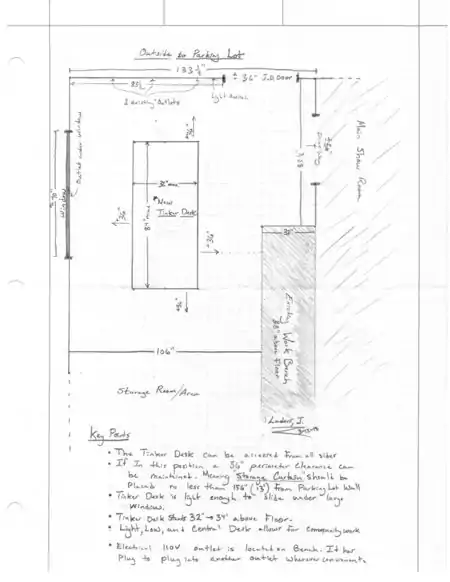 Outside to Parking Lot
133 ½"
36" J.D. Door
2 existing outlets
Light switch
Main Show Room
Outlet under window
Window
36"
32" max
New
Tinker Desk
84" max
36"
36"
36"
Existing Work Bench
38" above Floor
106"
Storage Room/Area
Key Points
• The Tinker Desk can be accessed from all sides
• If In this position a 36" perimeter clearance can
be maintained. Meaning "Storage Curtain" should be
placed no less than 156" (13') from Parking Lot Wall
• Tinker Desk is light enough to slide under large
windows.
• Tinker Desk Stands 32" → 34" above Floor.
• Light, Low, and Central Desk allows for community work
• Electrical 110V outlet is located on Bench. It has
plug to plug into another outlet where convenient.